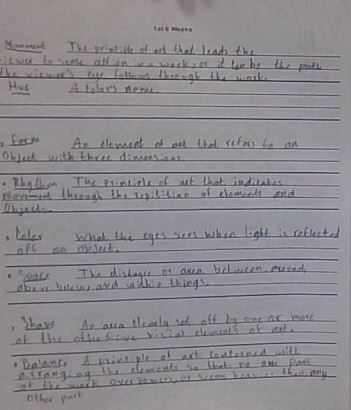 1st 6 Weeks
Movement The principle of art that leads the
viewer to sense action in a work, or it can be the path
the viewer's eye follows through the work.
Hue A color's name.
• Form An element of art that refers to an
Object with three dimensions.
• Rhythm The principle of art that indicates
movement through the repitition of elements and
Objects.
• Color What the eyes sees when light is reflected
off an object.
• Space The distance or area between, around,
above, below, and within things.
• Shape An area clearly set off by one or more
of the other five visual elements of art.
• Balance A principle of art concerned with
arranging the elements so that no one part
of the work overpowers, or seems heavier than any
other part